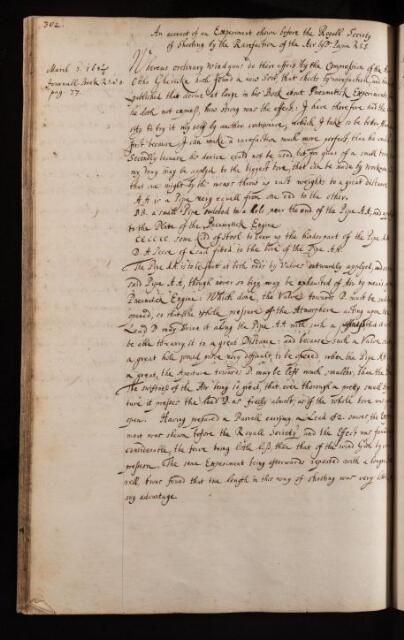 302.
An account of an Experiment shown before the Royall Society
of Shooting by the Rarefaction of the Air by Dr. Papin R.S.S.
March 3.
Journall Book
pag: 27.
Whereas ordinary Windguns do there effect by the Compression of the Air
Otho Gherike hath found a new Sort, that shoots by rarefaction, and hath
published that device at large in his Book about Pneumatick Experiments
he doth not express, how strong was the effect: I have therefore had the
sity to try it my self by another contrivance, which I take to be better
first because I can make a rarefaction much more perfect than he could
Secondly because his device could not be used but for guns of a small bore
my way may be applyed to the biggest bore, that can be made by workmen
that one might by this means throw up vast weights to a great distance
A.A is a Pipe very equall from one end to the other.
BB. a small Pipe soldered to a hole near the end of the Pipe A.A, and
to the Plate of the Pneumatick Engine
CCCCCC. some of Wood to bear up the hinder part of the Pipe A.A
D. A Piece of Lead fitted to the bore of the Pipe A.A
The Pipe AA is to be shut at both ends by Valves outwardly applyed, and
said Pipe A.A, though never so bigg may be exhausted of Air by means of
Pneumatick Engine: Which done, the Valve towards D. must be
opened, so that the whole pressure of the Atmosphere acting upon the
Lead D may drive it along the Pipe A.A with such a that it
be able to carry it to a great Distance: and because such a Valve
a great hole would prove very difficult to be opened when the Pipe A.A
is great, the Aperture towards D. may be left much smaller, than the
The swiftnes of the Air being so great, that even through a pretty small
ture it presses the Lead D. as freely almost, as if the whole bore was
open. Having prepared a Barrell carrying a Lead of 2. ounces the
ment was shown before the Royall Society, and the Effect was found
considerable, the force being little less than that of the Wind Gun by
pression. The same Experiment being afterwards repeated with a longer
rell, twas found that the length in this way of shooting was very
ny advantage